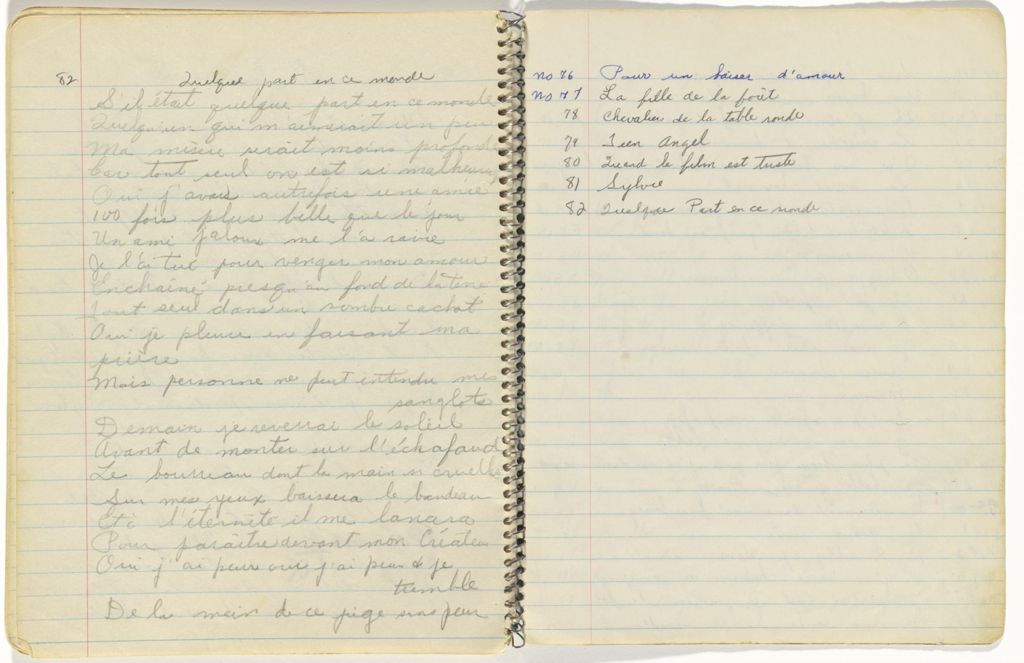 82 Quelque part en ce monde
S'il était quelque part en ce monde
Quelqu'un qui m'aimerait un peu
Ma misère serait moins profonde
Car tout seul on est si malheureux
Oui j'avais autrefois une amie
100 fois plus belle que le jour
Un ami jaloux me l'a ravie
Je l'ai tué pour venger mon amour
Enchainé presqu'au fond de la terre
Tout seul dans un sombre cachot
Oui je pleure en faisant ma
prière
Mais personne ne peut entendre mes
sanglots
Demain je reverrai le soleil
Avant de monter sur l'échafaud
Le bourreau dont la main si cruelle
Sur mes yeux baissera le bandeau
Et à l'éternité il me lancera
Pour paraitre devant mon Créateur
Oui j'ai peur oui j'ai peur & je
tremble
De la main de ce juge sans peur
no 76 Pour un baiser d'amour
no 77 La fille de la forêt
78 Chevalier de la table ronde
79 Teen Angel
80 Quand le film est triste
81 Sylvie
82 Quelque Part en ce monde